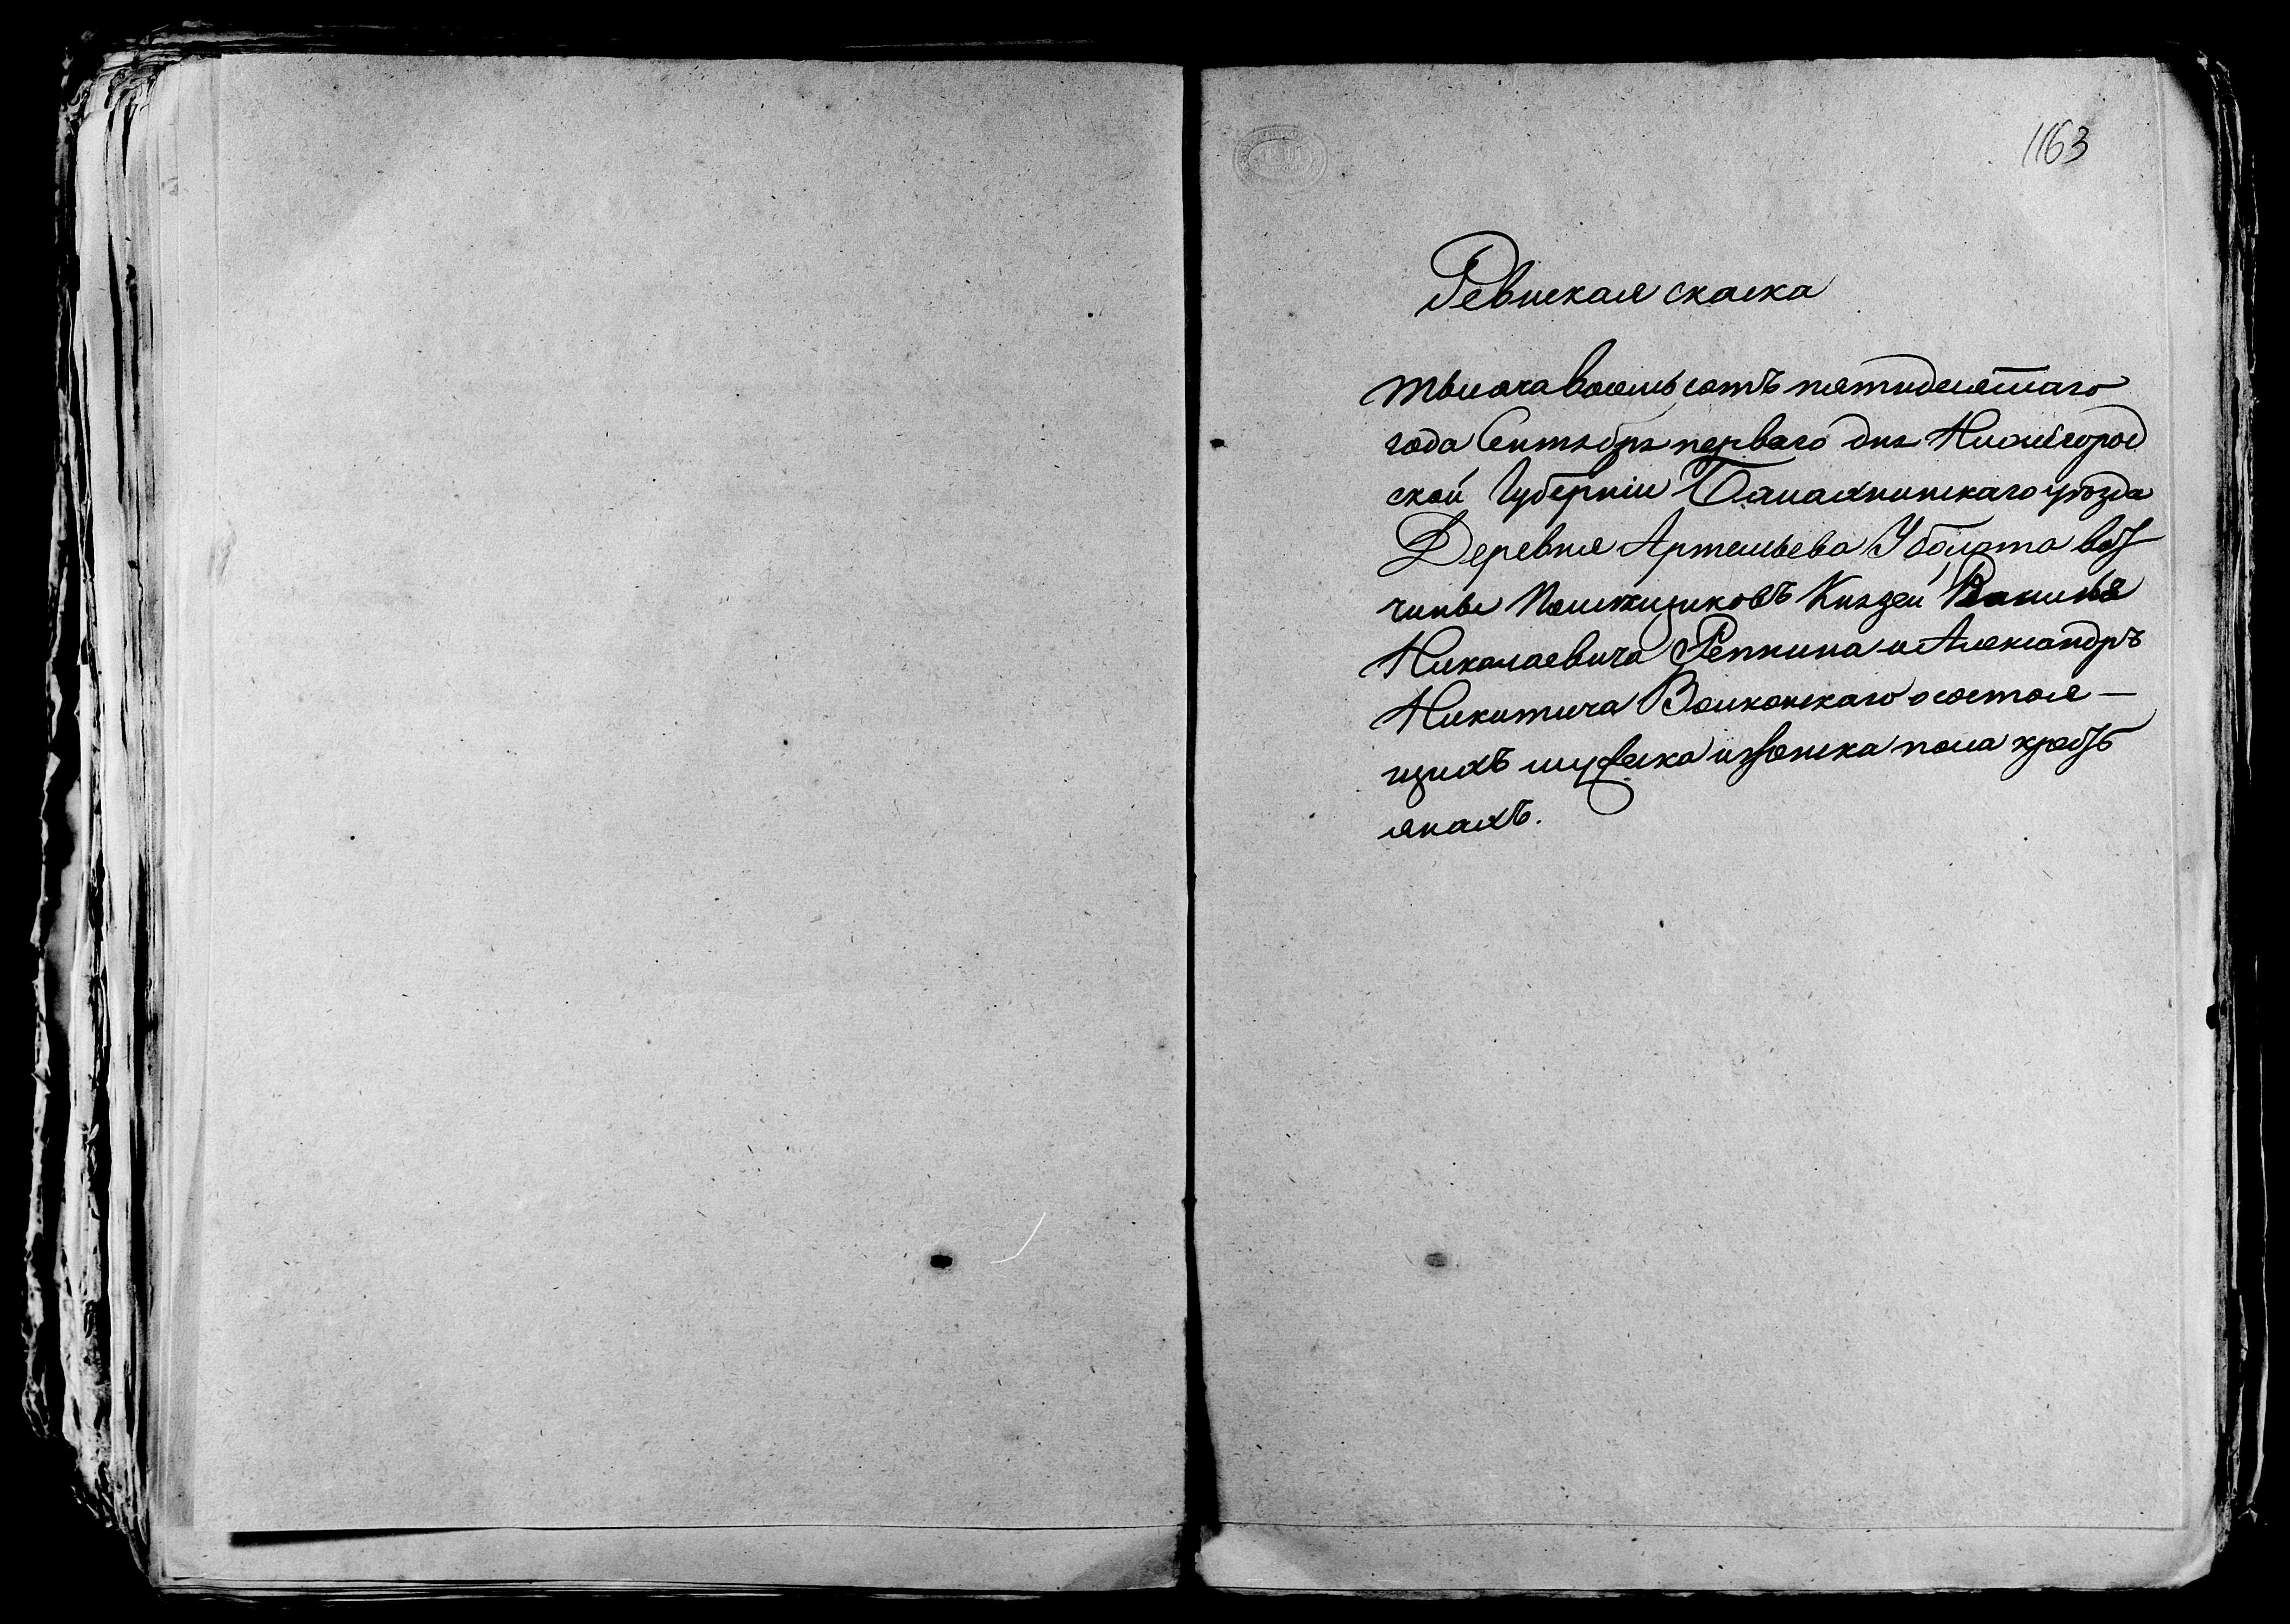 1163
Ревиская скаска
тысяча восемь сотъ пятидесятаго
года Сентября перваго дня Нижегород
ской Губерніи Балахнинскаго уѣзда
Деревня Артемьева У болота вот
чины Помѣщиковъ Князей Василья
Николаевича Репнина и Александръ
Никитича Волконскаго о состоя—
щихъ мужеска и женска пола кресть
янахъ.